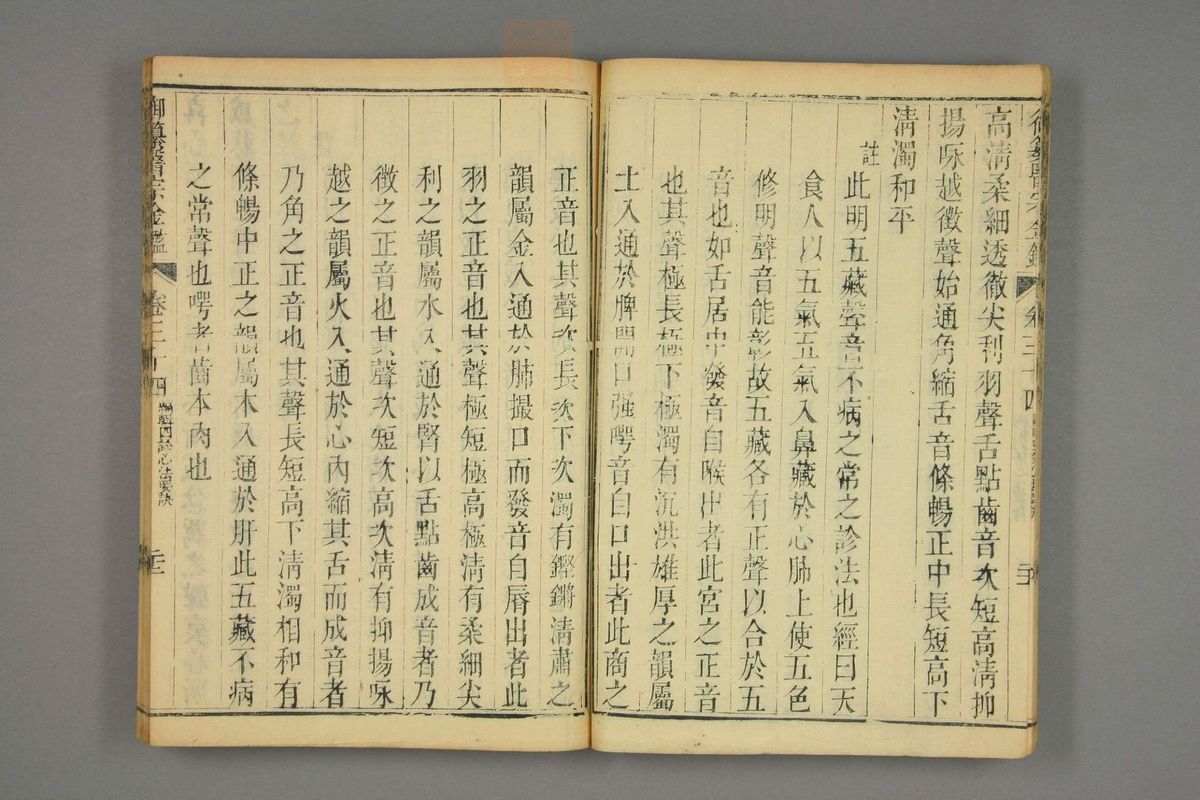 高清柔細透徹尖利羽聲舌點齒音次短高清抑
揚咏越徵聲始通角縮舌音條暢正中長短高下
清濁和平
註
此明五藏聲音不病之常之診法也經曰天
食人以五氣五氣入鼻藏於心肺上使五色
修明聲音能彰故五藏各有正聲以合於五
音也如舌居中發音自喉出者此宮之正音
也其聲極長極下極濁有沉洪雄厚之韻屬
土入通於脾開口强㗁音自口出者此商之
正音也其聲次長次下次濁有鏗鏘清肅之
韻屬金入通於肺撮口而發音自唇出者此
羽之正音也其聲極短極高極清有柔細尖
利之韻屬水入通於腎以舌點齒成音者乃
徴之正音也其聲次短次高次清有抑揚咏
越之韻屬火入通於心內縮其舌而成音者
乃角之正音也其聲長短高下清濁相和有
條暢中正之韻屬木入通於肝此五藏不病
之常聲也㗁者齒本肉也
御纂醫宗金鑑
卷三十四
編輯四診心法要訣